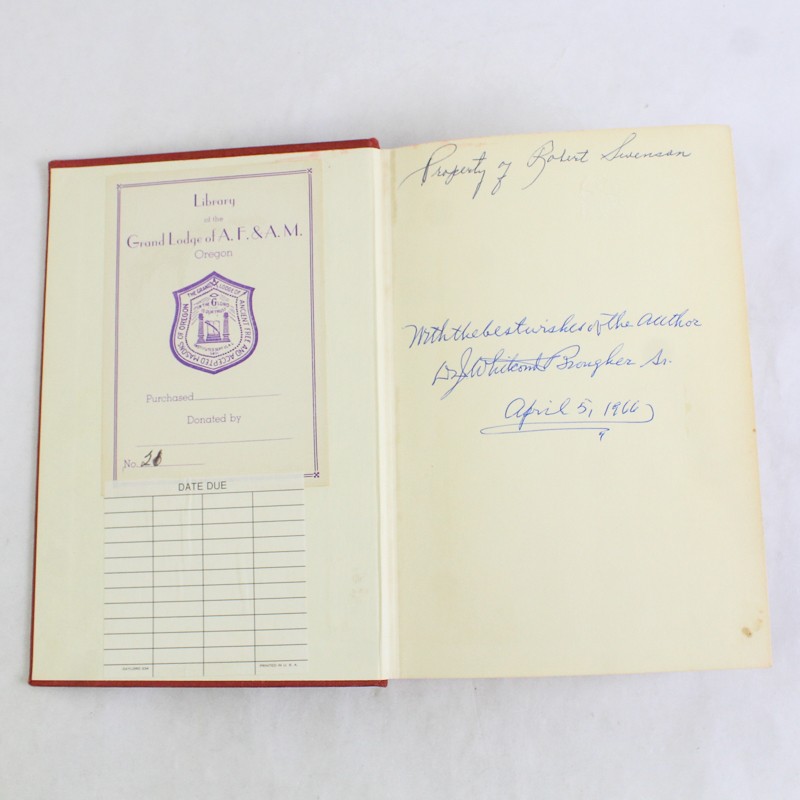 Library
of the
Grand Lodge of A. F. & A. M.
Oregon
THE GRAND LODGE OF ANCIENT FREE AND ACCEPTED MASONS OF OREGON
G
Purchased
Donated by
No. 28
DATE DUE
PRINTED IN U.S.A.
Property of Robert Swenson
With the best wishes of the author
Dr J Whitcomb Brougher Sr.
April 5, 1966